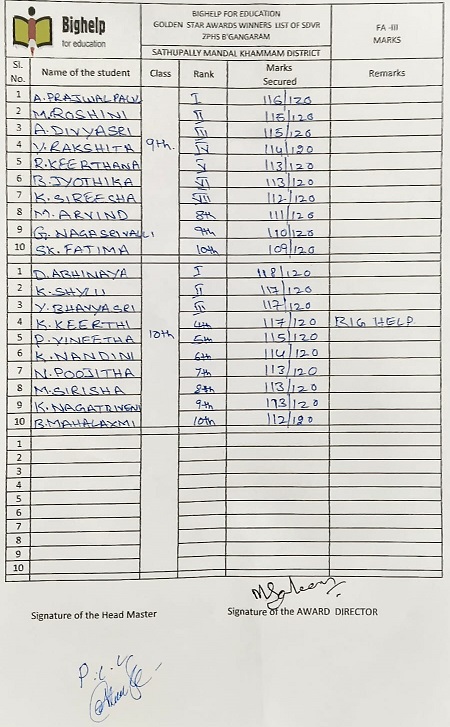 Bighelp
for education
BIGHELP FOR EDUCATION
GOLDEN STAR AWARDS WINNERS LIST OF SDVR
ZPHS B'GANGARAM
SATHUPALLY MANDAL KHAMMAM DISTRICT
FA -III
MARKS
Sl. No. Name of the student Class Rank Marks Secured Remarks
1 A.PRAJWAL I 116/120
2 M.ROSHINI II 115/120
3 A.DIVYASRI III 115/120
9th.
4 Y.RAKSHITA IV 114/120
5 R.KEERTHANA V 113/120
6 B.JYOTHIKA VI 113/120
7 K.SIREECHA VII 112/120
8 M.ARVIND 8th 111/120
9 G.NAGASRIVALLI 9th 110/120
10 SK.FATIMA 10th 109/120
1 D.ABHINAYA I 118/120
2 K. II 117/120
3 Y.BHAVYASRI III 117/120
4 K.KEERTHI 4th 117/120 BIG HELP
10th
5 P.VINEETHA 5th 115/120
6 K.NANDINI 6th 114/120
7 N.POOJITHA 7th 113/120
8 M.SIRISHA 8th 113/120
9 K.NAGATRIVENI 9th 113/120
10 B.MAHALAXMI 10th 112/120
1
2
3
4
5
6
7
8
9
10
Signature of the Head Master
Signature of the AWARD DIRECTOR